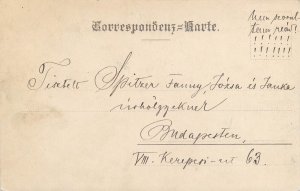 Correspondenz-Karte.
Tisztelt Spitzer Fanny Józsa és Janka
úrhölgyeknek
Budapesten,
VIII. Kerepesi-út 63.